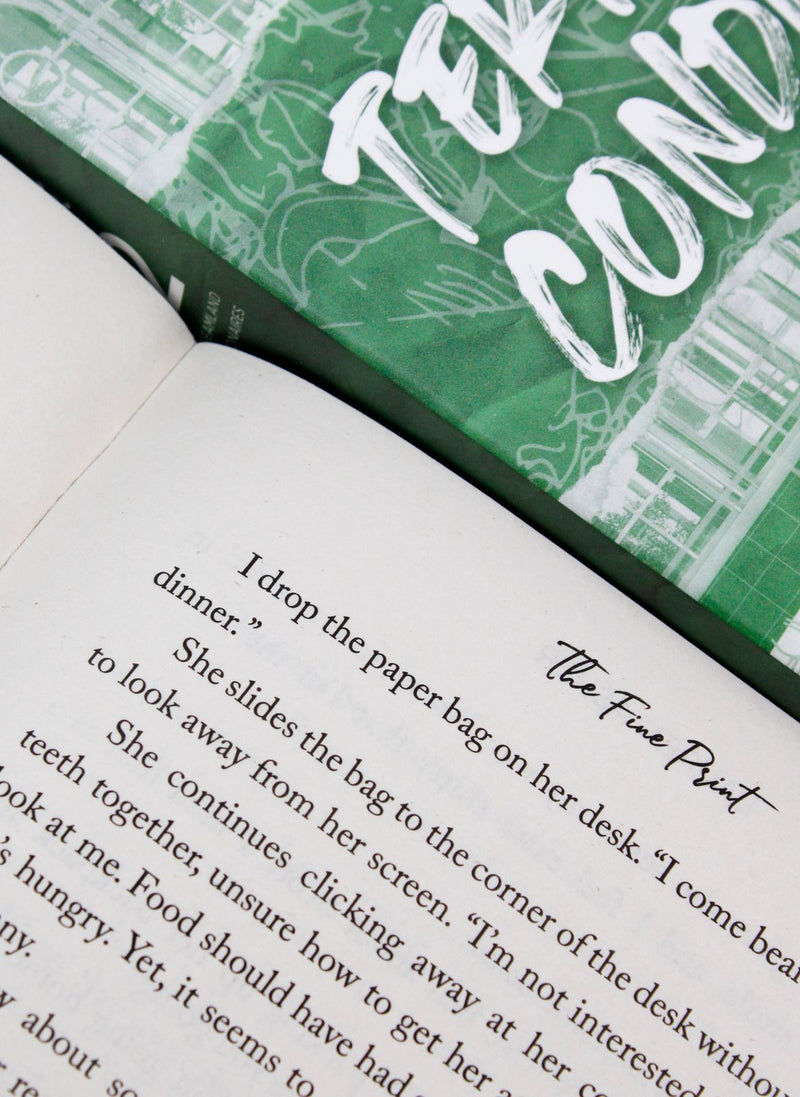 TER
COND
AMLAND
NAIRES
The Fine Print
I drop the paper bag on her desk. “I come bear
dinner.”
She slides the bag to the corner of the desk withou
to look away from her screen. “I’m not interested
She continues clicking away at her co
teeth together, unsure how to get her a
look at me. Food should have had
’s hungry. Yet, it seems to
ny.
about so